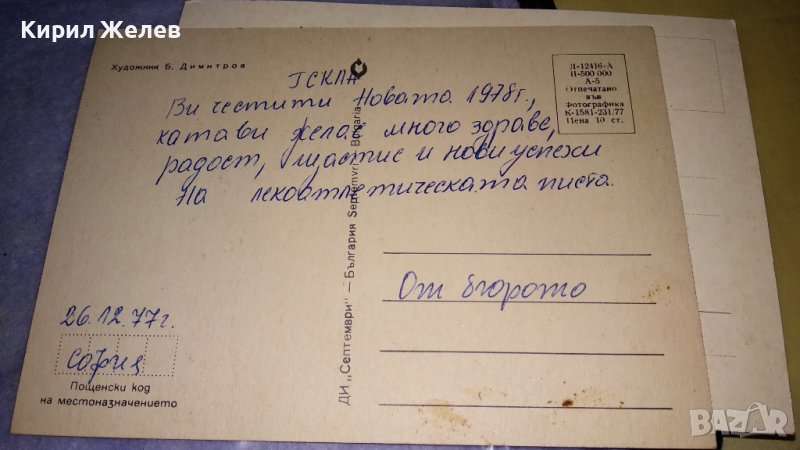 Кирил Желев
Художник Б. Димитров
ГСКЛА
Ви честити Новата 1978г.,
като ви желае много здраве,
радост, щастие и нови успехи
на лекоатлетическата писта.
Л-12416-А
П-500 000
А-5
Отпечатано
във
Фотографика
К-1581-231/77
Цена 10 ст.
ДИ „Септември" — България Septemvri Bulgaria
От бюрото
26.12.77г.
София
Пощенски код
на местоназначението
BAZAR